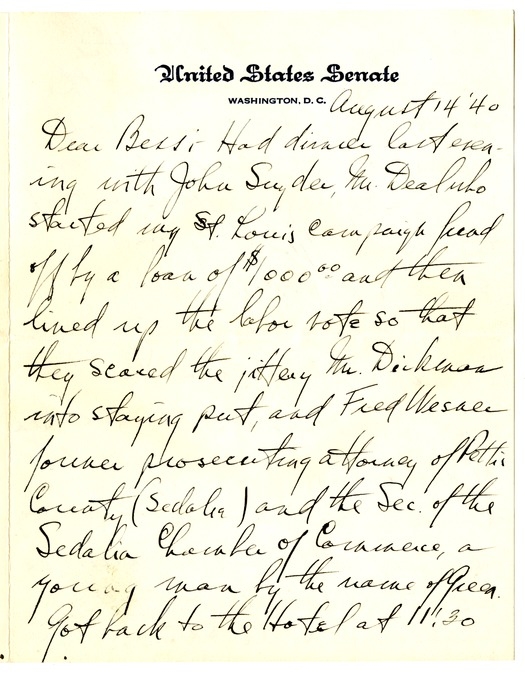 United States Senate
WASHINGTON, D. C.
August 14 '40
Dear Bess:- Had dinner last even-
ing with John Snyder, Mr. Deal who
started my St. Louis campaign fund
off by a loan of $1000 00 and then
lined up the labor vote so that
they scared the jittery Mr. Dickmann
into staying put, and Fred Wesner
former prosecuting attorney of Pettis
County (Sedalia) and the Sec. of the
Sedalia Chamber of Commerce, a
young man by the name of Green.
Got back to the Hotel at 11:30